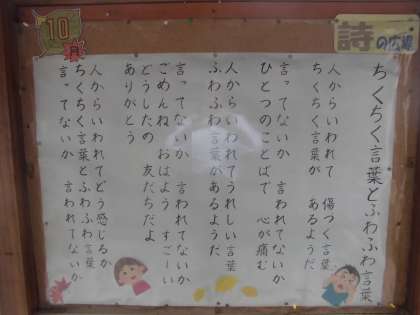 詩の広場
10
ちくちく言葉とふわふわ言葉
人からいわれて 傷つく言葉
ちくちく言葉が あるようだ
言ってないか 言われてないか
ひとつのことばで 心が痛む
人からいわれてうれしい言葉
ふわふわ言葉があるようだ
言ってないか 言われてないか
ごめんね おはよう すごーい
どうしたの 友だちだよ
ありがとう
人からいわれてどう感じるか
ちくちく言葉とふわふわ言葉
言ってないか 言われてないか